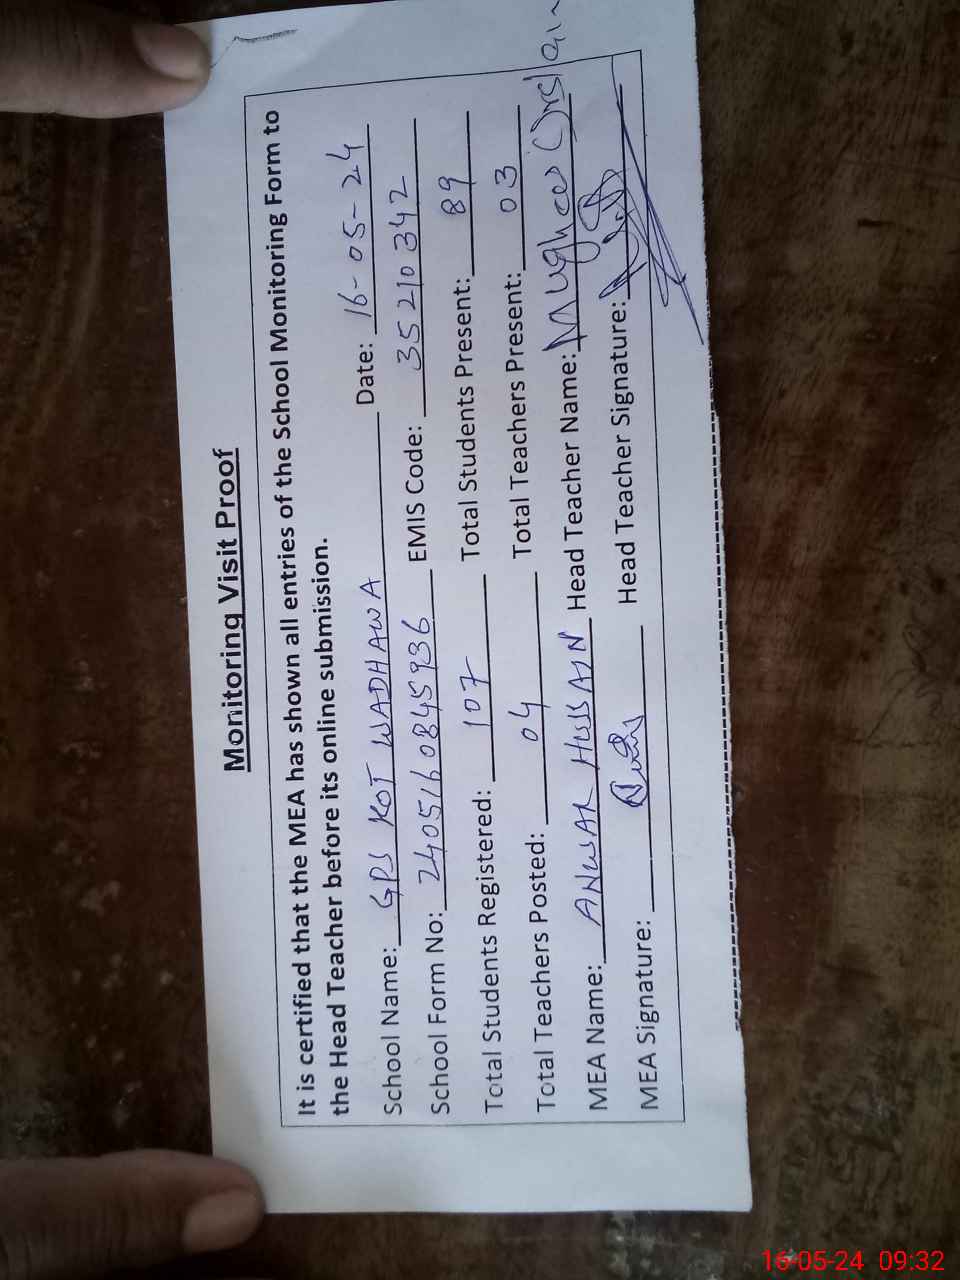 Monitoring Visit Proof
It is certified that the MEA has shown all entries of the School Monitoring Form to
the Head Teacher before its online submission.
School Name: GPS KOT WADHAWA Date: 16-05-24
School Form No: 240516084593​6 EMIS Code: 35210342
Total Students Registered: 107 Total Students Present: 89
Total Teachers Posted: 04 Total Teachers Present: 03
MEA Name: ANWAR HUSSAIN Head Teacher Name:
MEA Signature: Head Teacher Signature:
16-05-24 09:32